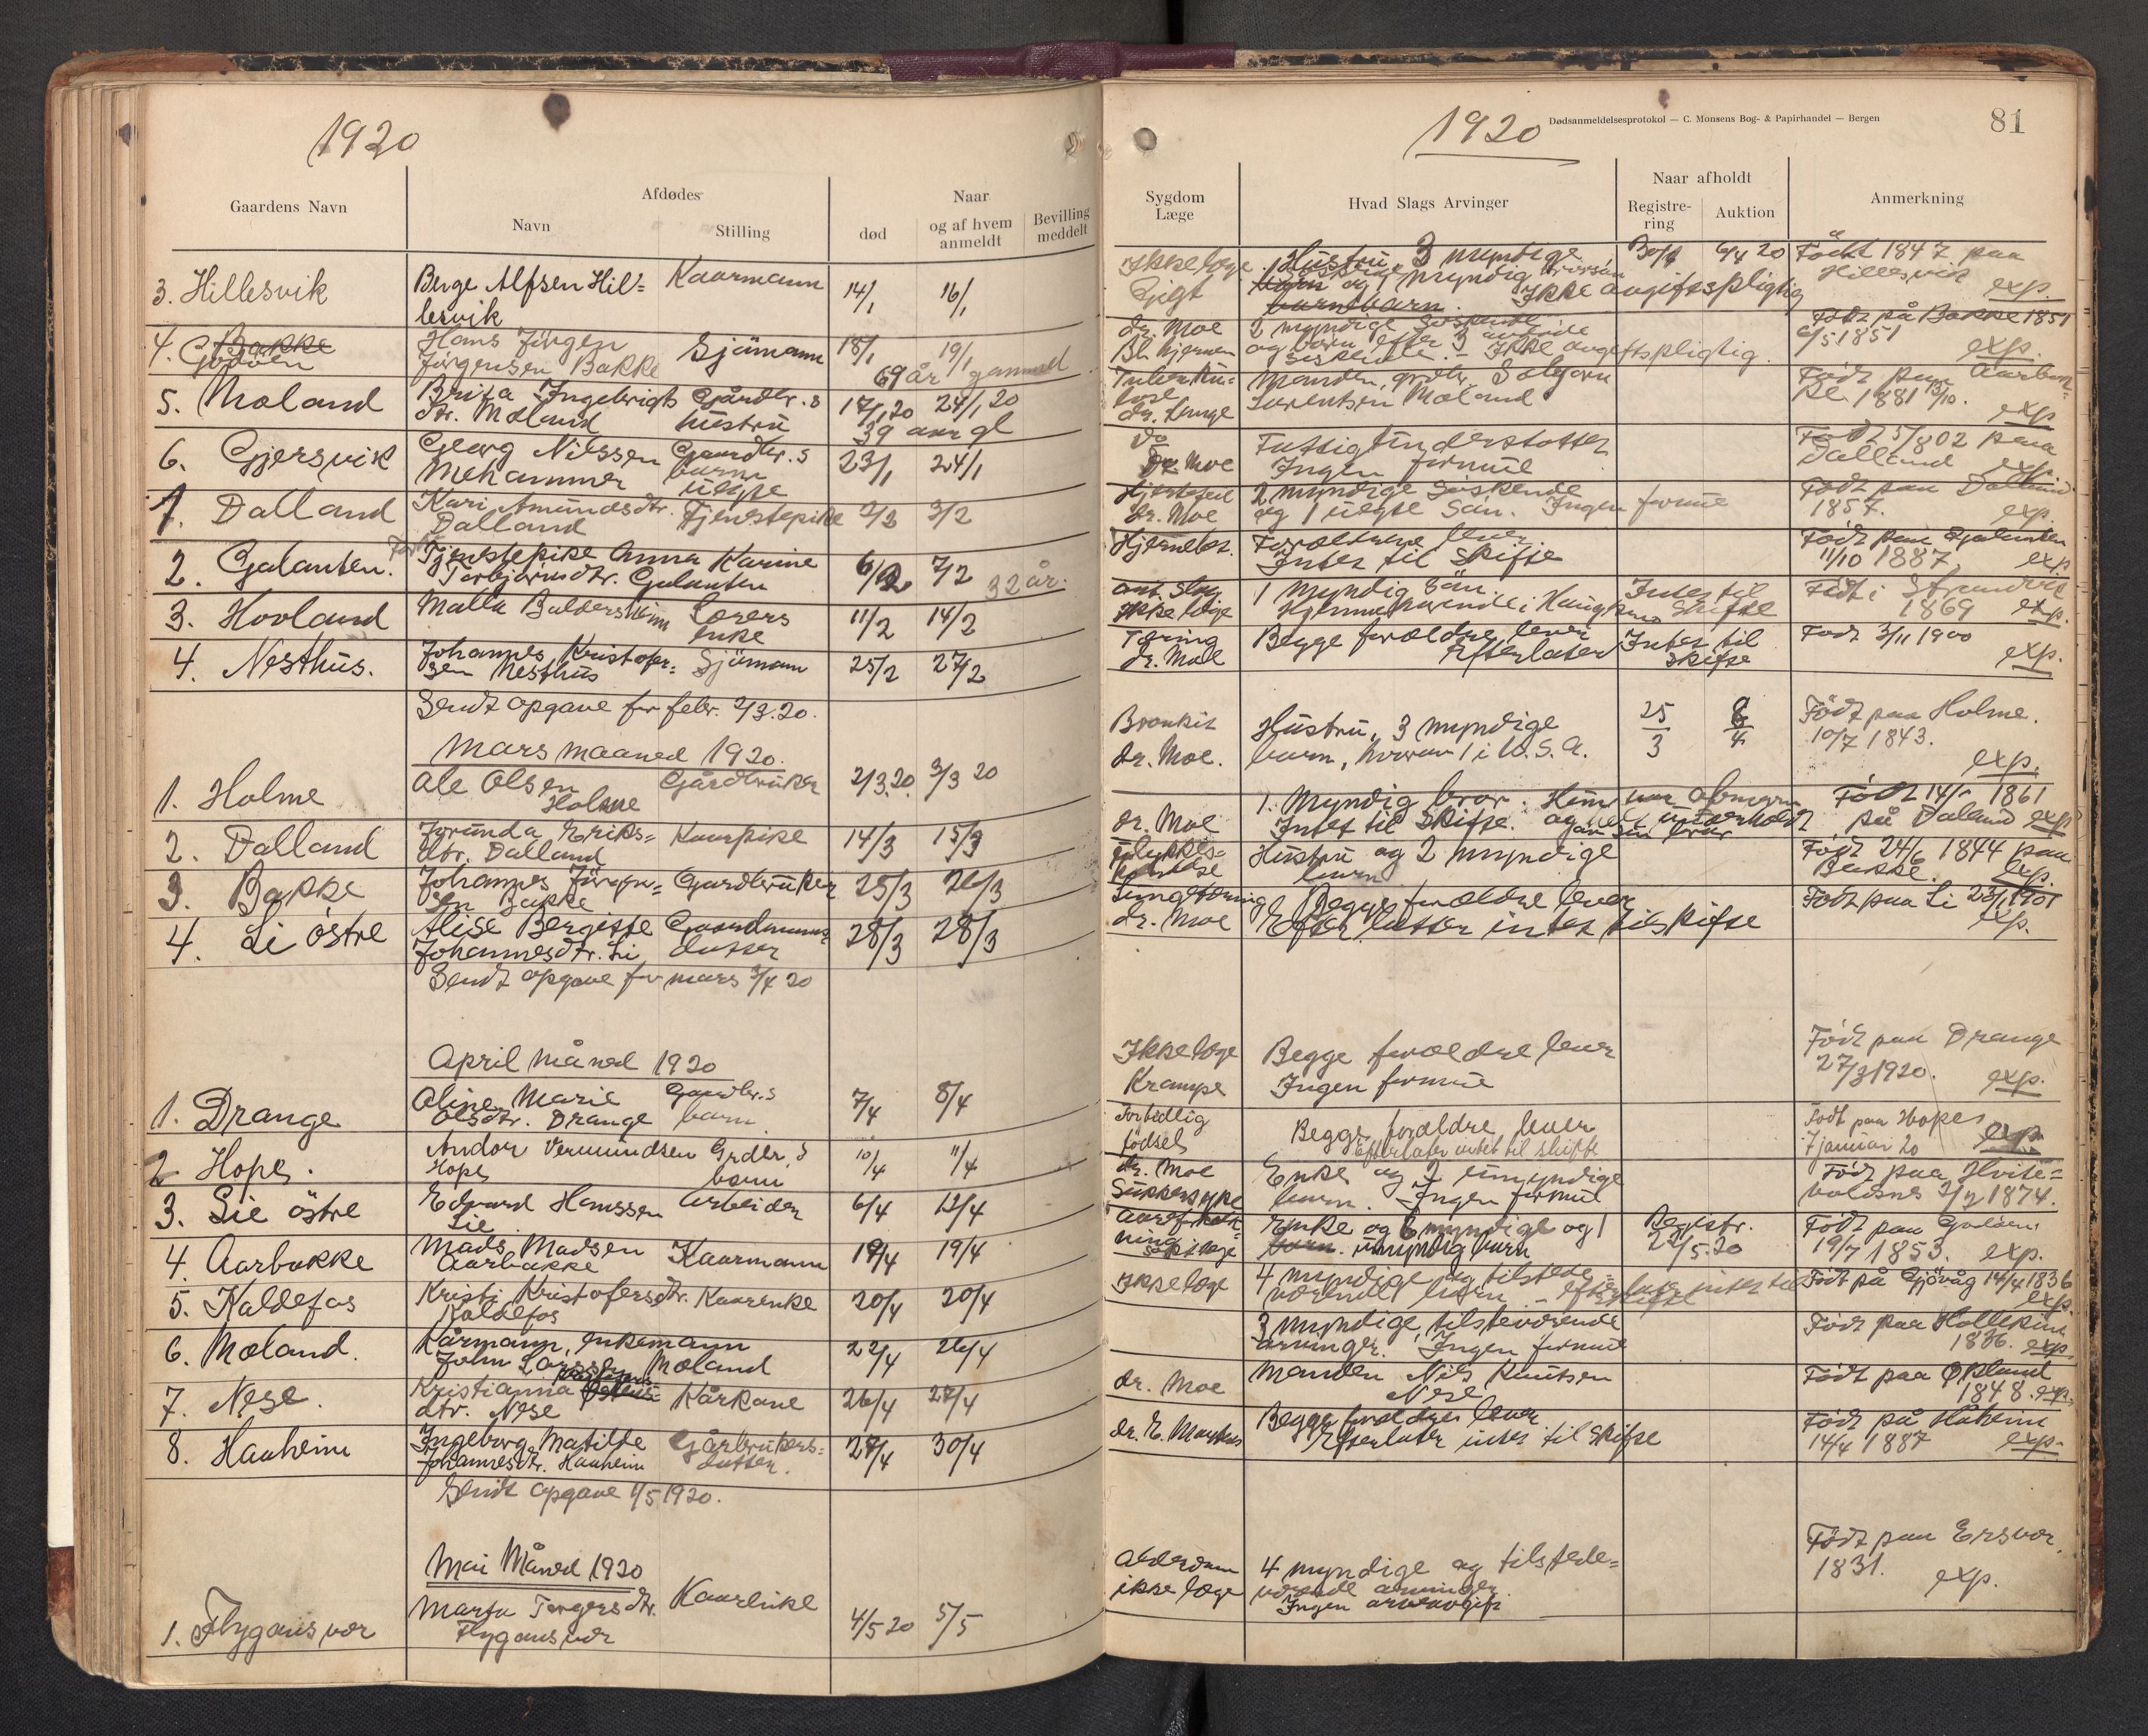 1920
Gaardens Navn
Afdødes
Navn
Stilling
død
Naar
og af hvem
anmeldt
Bevilling
meddelt
3. Hillesvik
Berge Alfsen Hil=
lesvik
Kaarmann
14/1
16/1
4. Bakke
Godøen
Hans Jörgen
Jørgensen Bakke
Sjömann
18/1
19/1
69 år gammel
5. Moland
Brita Ingebrigts
dtr. Moland
Gårdbr.s
hustru
17/1 20
24/1 20
39 aar gl
6. Gjersvik
Georg Nilssen
Mehammer
Gaardbr.s
barn
uegte
23/1
24/1
1. Dalland
Kari Amundsdtr.
Dalland
Tjenstepike
2/2
3/2
2. Galanten.
Tjenstepike Anna Karine
Torbjörnsdtr. Galanten
6/2
7/2
32 år.
3. Hovland
Malla Baldersheim
Lærers
enke
11/2
14/2
4. Nesthus.
Johannes Kristofer=
sen Nesthus
Sjömann
25/2
27/2
Sendt opgave for febr. 2/3.20.
Mars maaned 1920.
1. Holme
Ole Olsen
Holme
Gårdbruker
2/3.20.
3/3 20
2. Dalland
Jorunda Eriks=
dtr. Dalland
Kaarpike
14/3
15/3
3. Bakke
Johannes Jörgen=
sen Bakke
Gardbruker
25/3
26/3
4. Li östre
Alise Bergitte
Johannesdtr. Li
Gaardmanns
datter
28/3
28/3
Sendt opgave for mars 3/4 20
April måned 1920
1. Drange
Oline Marie
Olsdtr. Drange
Gaardbr.s
barn
7/4
8/4
2 Hope.
Andor Vermundsen
Hope
Grdbr.s
barn
10/4
11/4
3. Lie östre
Edvard Hanssen
Lie
Arbeider
6/4
12/4
4. Aarbakke
Mads Madsen
Aarbakke
Kaarmann
19/4
19/4
5. Kaldefos
Kristi Kristofersdtr.
Kaldefos
Kaarenke
20/4
20/4
6. Moland.
Kårmann, enkemann
John Larssen Moland
22/4
26/4
7. Nese.
Kristianna
dtr. Nese
Kårkone
26/4
27/4
8. Hauheim
Ingeborg Matilde
Johannesdtr. Hauheim
Gårbrukers=
datter.
29/4
30/4
Sendt opgave 1/5 1920.
Mai Måned 1920
1. Flygansvær
Marta Torgersdtr.
Flygansvær
Kaarenke
4/5 20
5/5
1920
Dødsanmeldelsesprotokol — C. Monsens Bog- & Papirhandel — Bergen
81
Sygdom
Læge
Hvad Slags Arvinger
Naar afholdt
Registre-
ring
Auktion
Anmerkning
Ikke læge
Gigt
Hustru, 3 myndige
barn og 1 myndig
barnebarn. Ikke avgiftspligtig
6/4 20
Födt 1847 paa
Hillesvik
exp.
dr. Moe
2 myndige söskende
og barn efter 3 avdøde
siskende. – Ikke avgiftspligtig.
Født på Bakke 1851
6/5 1851
exp.
Tuberku=
lose
dr. Lunge
Manden, grdbr. Salomon
Larentsen Moland
Födt paa Aarbak=
ke 1881
exp
Do
Dr. Moe
Fattigunderstøttet
Ingen formue
Födt 5/8 02 paa
Dalland
exp.
Hjertefeil
dr. Moe
2 myndige Söskende
og 1 uegte Sön. Ingen formue
Födt paa Dalland
1857.
exp.
Hjernebet.
Forældrene lever.
Intet til Skifte
Födt paa Galanten
11/10 1887
exp
ant. Slag
ikke læge
1 Myndig Sön.
Hjemmehørende i Haugesund
Intet til
Skifte
Födt i Strandvik
1869
exp.
Tæring
dr. Moe
Begge forældre lever
Efterlater
Intet til
Skifte
Födt 3/11 1900
exp.
Bronkit
dr. Moe.
Hustru, 3 myndige
barn, hvorav 1 i U.S.A.
25
3
8
4
Födt paa Holme.
10/7 1843.
exp.
dr. Moe
1. Myndig bror.
Intet til Skifte.
Födt 14/1 1861
på Daland exp
Ulykkes=
hændelse
Hustru og 2 myndige
barn
Födt 24/6 1844 paa
Bakke.
exp.
Lungetæring
dr. Moe
Begge forældre lever
Efterlatter intet til skifte
Födt paa Li 23/1 1901
exp.
Ikke læge
Krampe
Begge forældre lever
Ingen formue
Födt paa Drange
27/3 1920.
exp.
Fortidlig
fødsel
Begge forældre lever
Efterlater intet til skifte
Født paa Hope
7 januar 20
exp.
dr. Moe
Sukkersyke
Enke og 2 umyndige
barn. Ingen formue
Födt paa Hvite=
voldsnes 2/7 1874.
Aareforkalk
ning
Enke og 6 myndige og 1
barn. umyndig barn
Registr.
22/5.20
Födt paa
19/7 1853. exp.
Ikke læge
4 myndige og tilstede=
værende barn – efterlater intet til
skifte
Födt på Gjövåg 14/4 1836
exp.
3 myndige tilsteværende
arvinger. Ingen formue
Födt paa
1836. exp.
dr. Moe
Manden Nils Knutsen
Nese
Födt paa Økland
1848. exp.
Begge forældre lever
Efterlater intet til Skifte
Födt på Håheim
14/4 1887
exp.
Alderdom
ikke læge
4 myndige og tilstede=
værende arvinger.
Ingen arveavgift
Födt paa Ersvær.
1831.
exp.